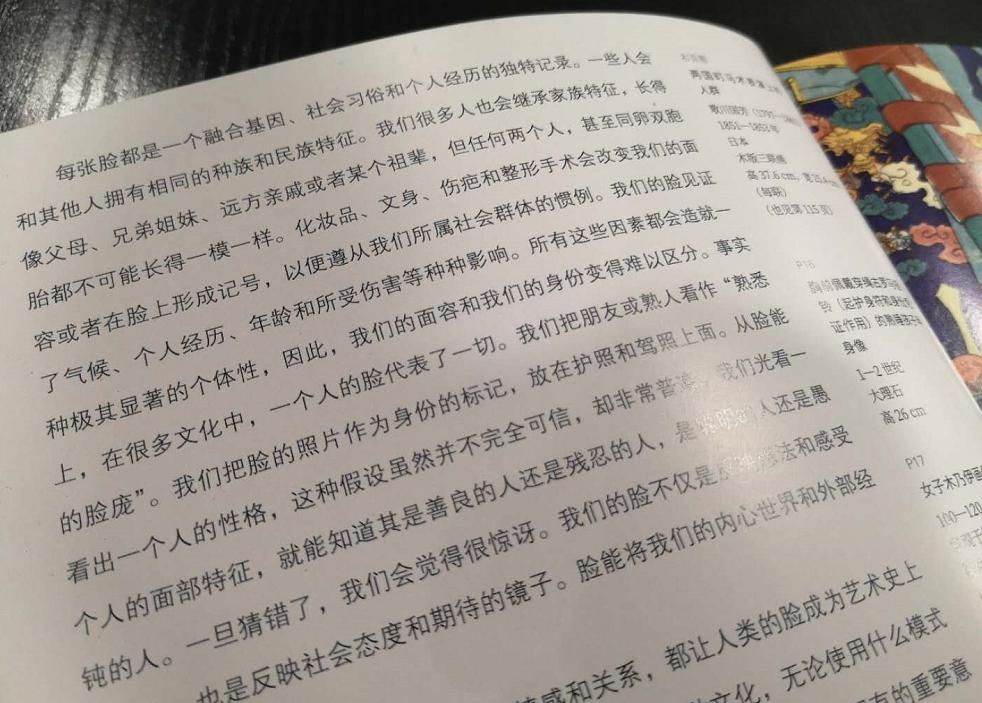 每张脸都是一个融合基因、社会习俗和个人经历的独特记录。一些人会
和其他人拥有相同的种族和民族特征。我们很多人也会继承家族特征，长得
像父母、兄弟姐妹、远方亲戚或者某个祖辈，但任何两个人，甚至同卵双胞
胎都不可能长得一模一样。化妆品、文身、伤疤和整形手术会改变我们的面
容或者在脸上形成记号，以便遵从我们所属社会群体的惯例。我们的脸见证
了气候、个人经历、年龄和所受伤害等种种影响。所有这些因素都会造就一
种极其显著的个体性，因此，我们的面容和我们的身份变得难以区分。事实
上，在很多文化中，一个人的脸代表了一切。我们把朋友或熟人看作“熟悉
的脸庞”。我们把脸的照片作为身份的标记，放在护照和驾照上面。从脸能
看出一个人的性格，这种假设虽然并不完全可信，却非常普遍。我们光看一
个人的面部特征，就能知道其是善良的人还是残忍的人，是聪明的人还是愚
钝的人。一旦猜错了，我们会觉得很惊讶。我们的脸不仅是想法和感受
也是反映社会态度和期待的镜子。脸能将我们的内心世界和外部经
情感和关系，都让人类的脸成为艺术史上
文化，无论使用什么模式
有的重要意
右页图
人群
1851—1853年
日本
木版三联画
高37.6 cm，宽25.4
（每联）
（也见第115页）
P16
铃（起护身符和身份
证作用）的熟睡孩子
身像
1—2世纪
大理石
高26 cm
P17
女子木乃伊画
100—120